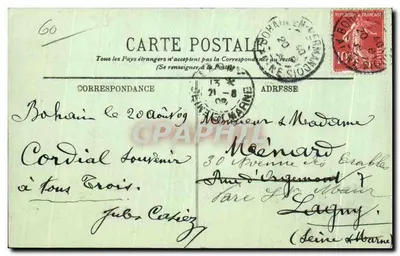 60
CARTE POSTALE
Tous les Pays étrangers n'acceptent pas la Correspondance au recto
(Se renseigner à la Poste)
CORRESPONDANCE
ADRESSE
Bohain le 20 Août 09
Cordial Souvenir
à tous Trois.
Jules Casiez
Monsieur & Madame
Ménard
30 Avenue des Erables
Rue d'Orgemont 7
Parc St Maur
Lagny
(Seine & Marne)
BOHAIN-EN-VERMAN
AISNE
21-8
SEINE-ET-MARNE
REPUBLIQUE FRANÇAISE
10